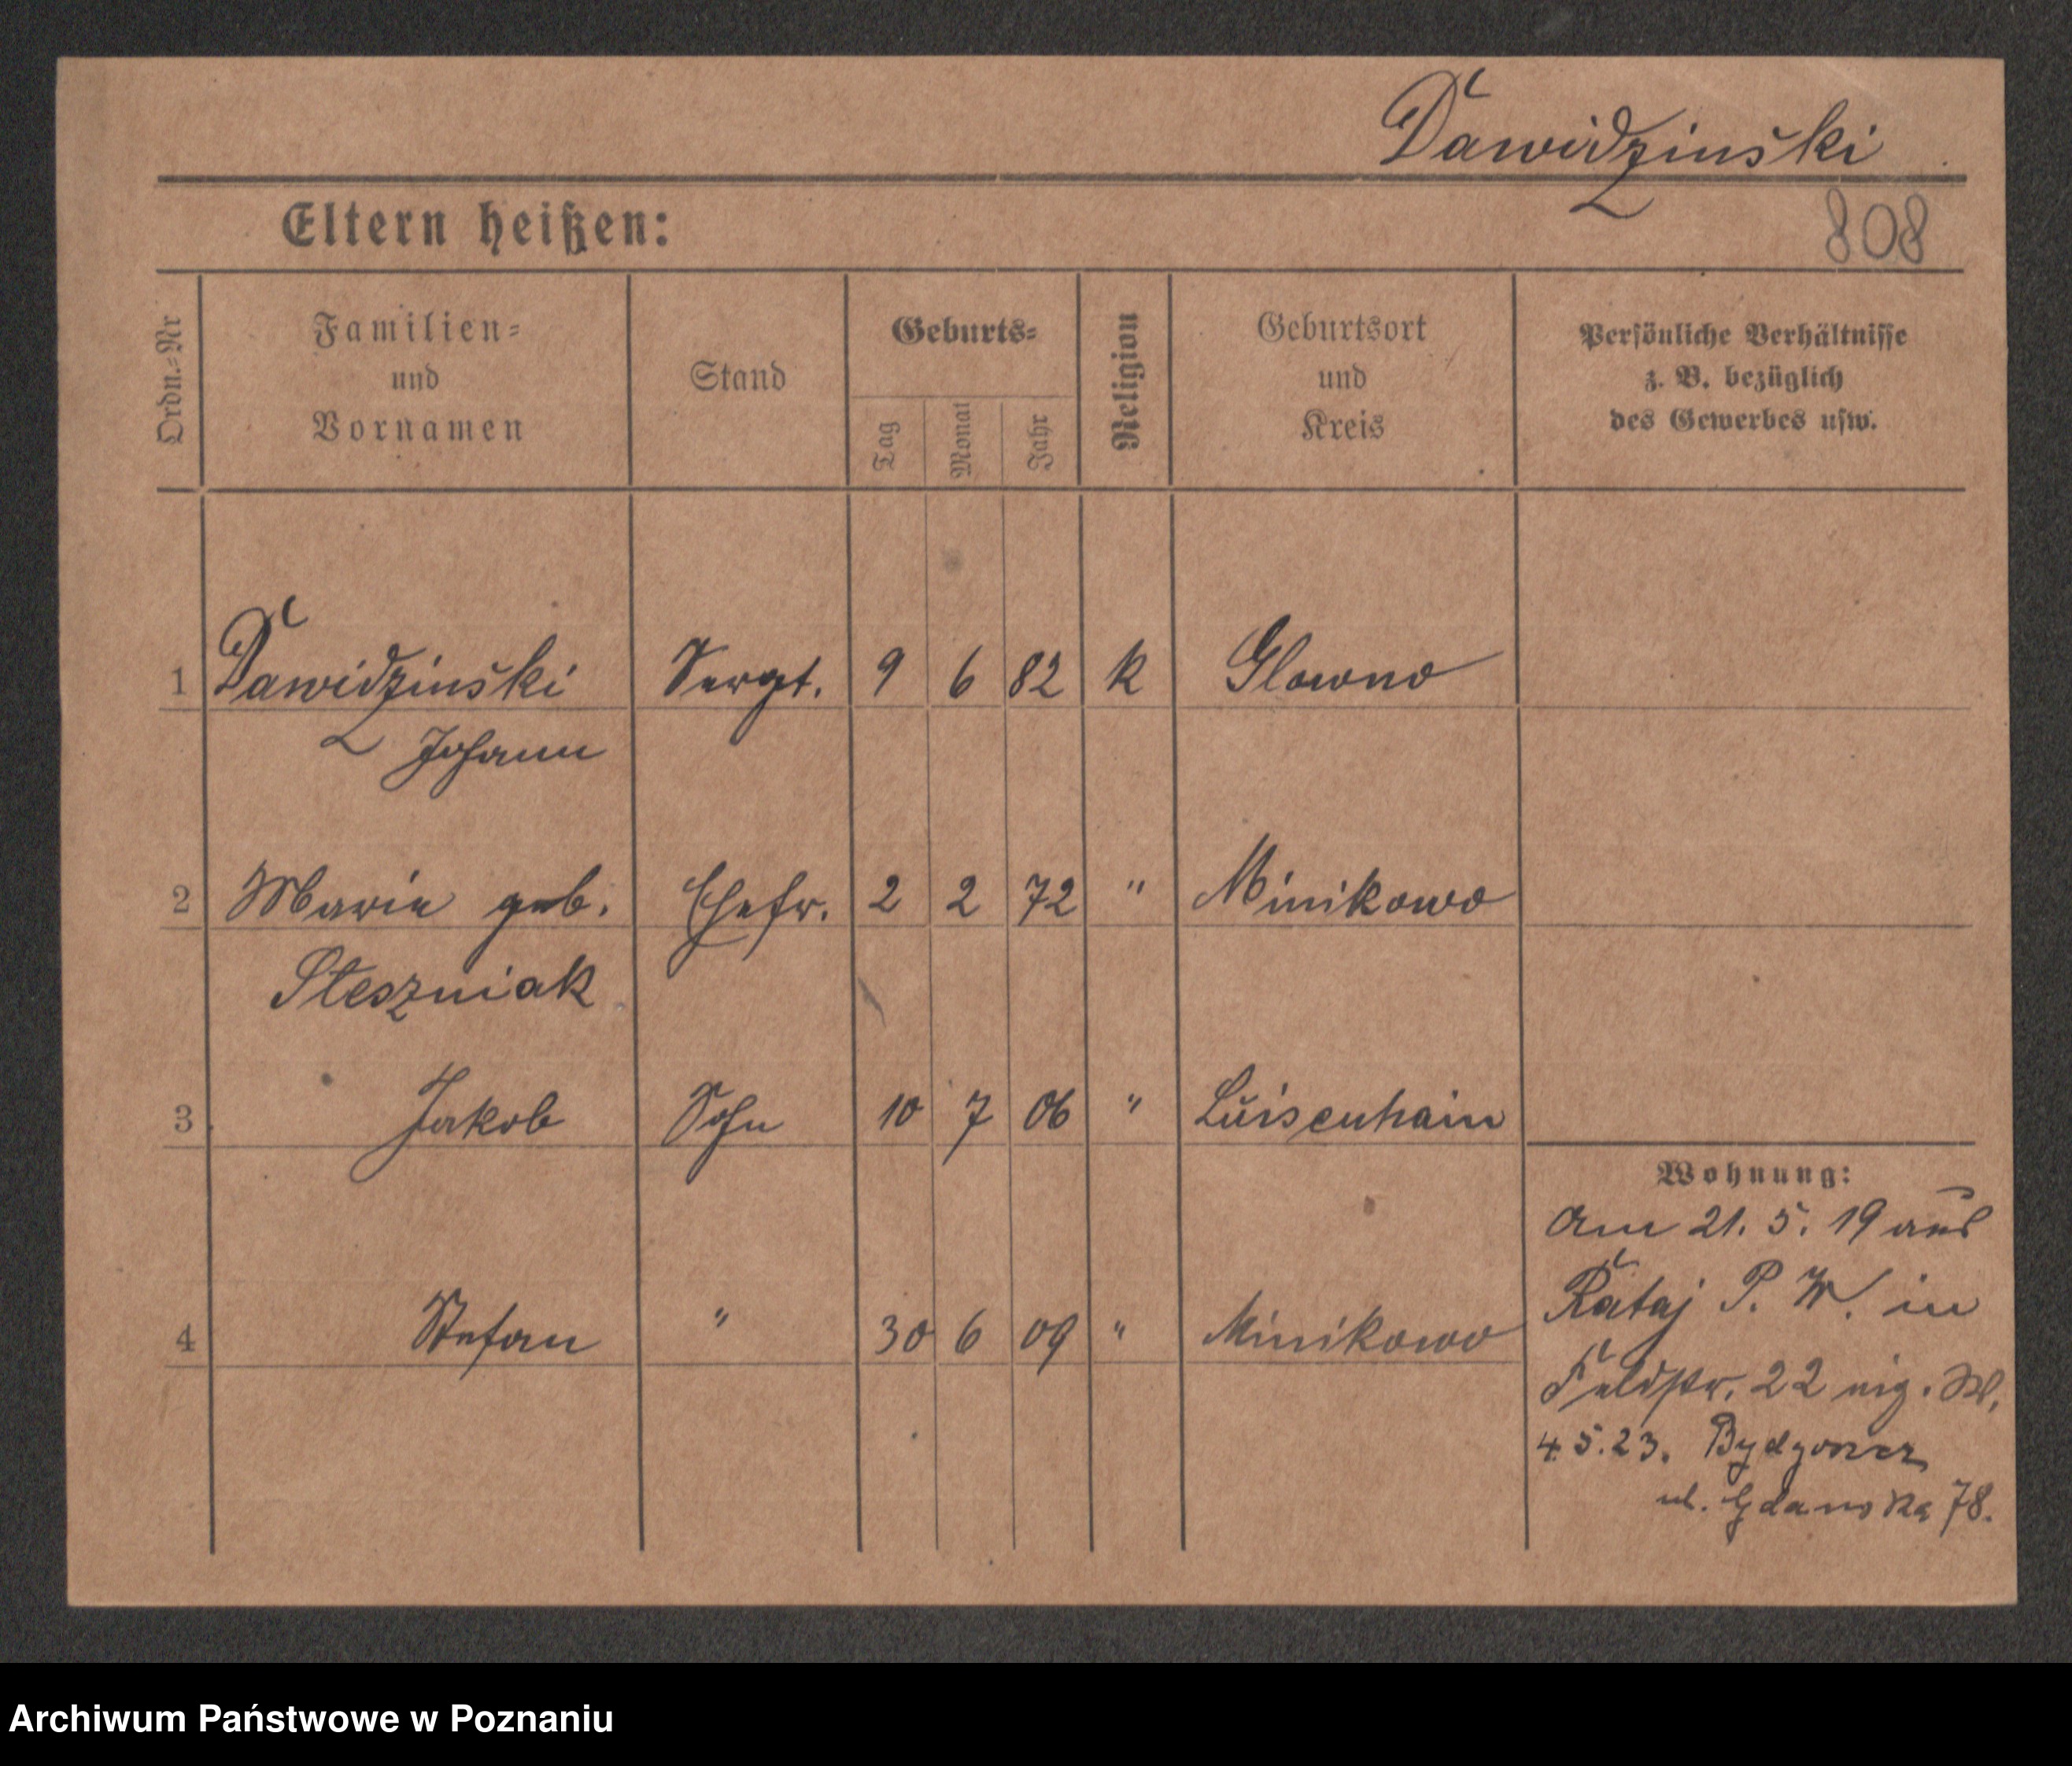 Dawidzinski
808
Eltern heißen:
Ordn.-Nr
Familien-
und
Vornamen
Stand
Geburts-
Tag
Monat
Jahr
Religion
Geburtsort
und
Kreis
Persönliche Verhältnisse
z. B. bezüglich
des Gewerbes usw.
1 Dawidzinski Sergt. 9 6 82 K Glowno
Johann
2 Maria geb. Ehefr. 2 2 72 " Minikowo
Steszniak
3 Jakob Sohn 10 7 06 " Luisenhain
4 Stefan " 30 6 09 " Minikowo
Wohnung:
Am 21. 5. 19 aus
Rataj P. W. in
Feldstr. 22 eig. W.
4. 5. 23. Bydgoszcz
ul. Gdanska 78.
Archiwum Państwowe w Poznaniu